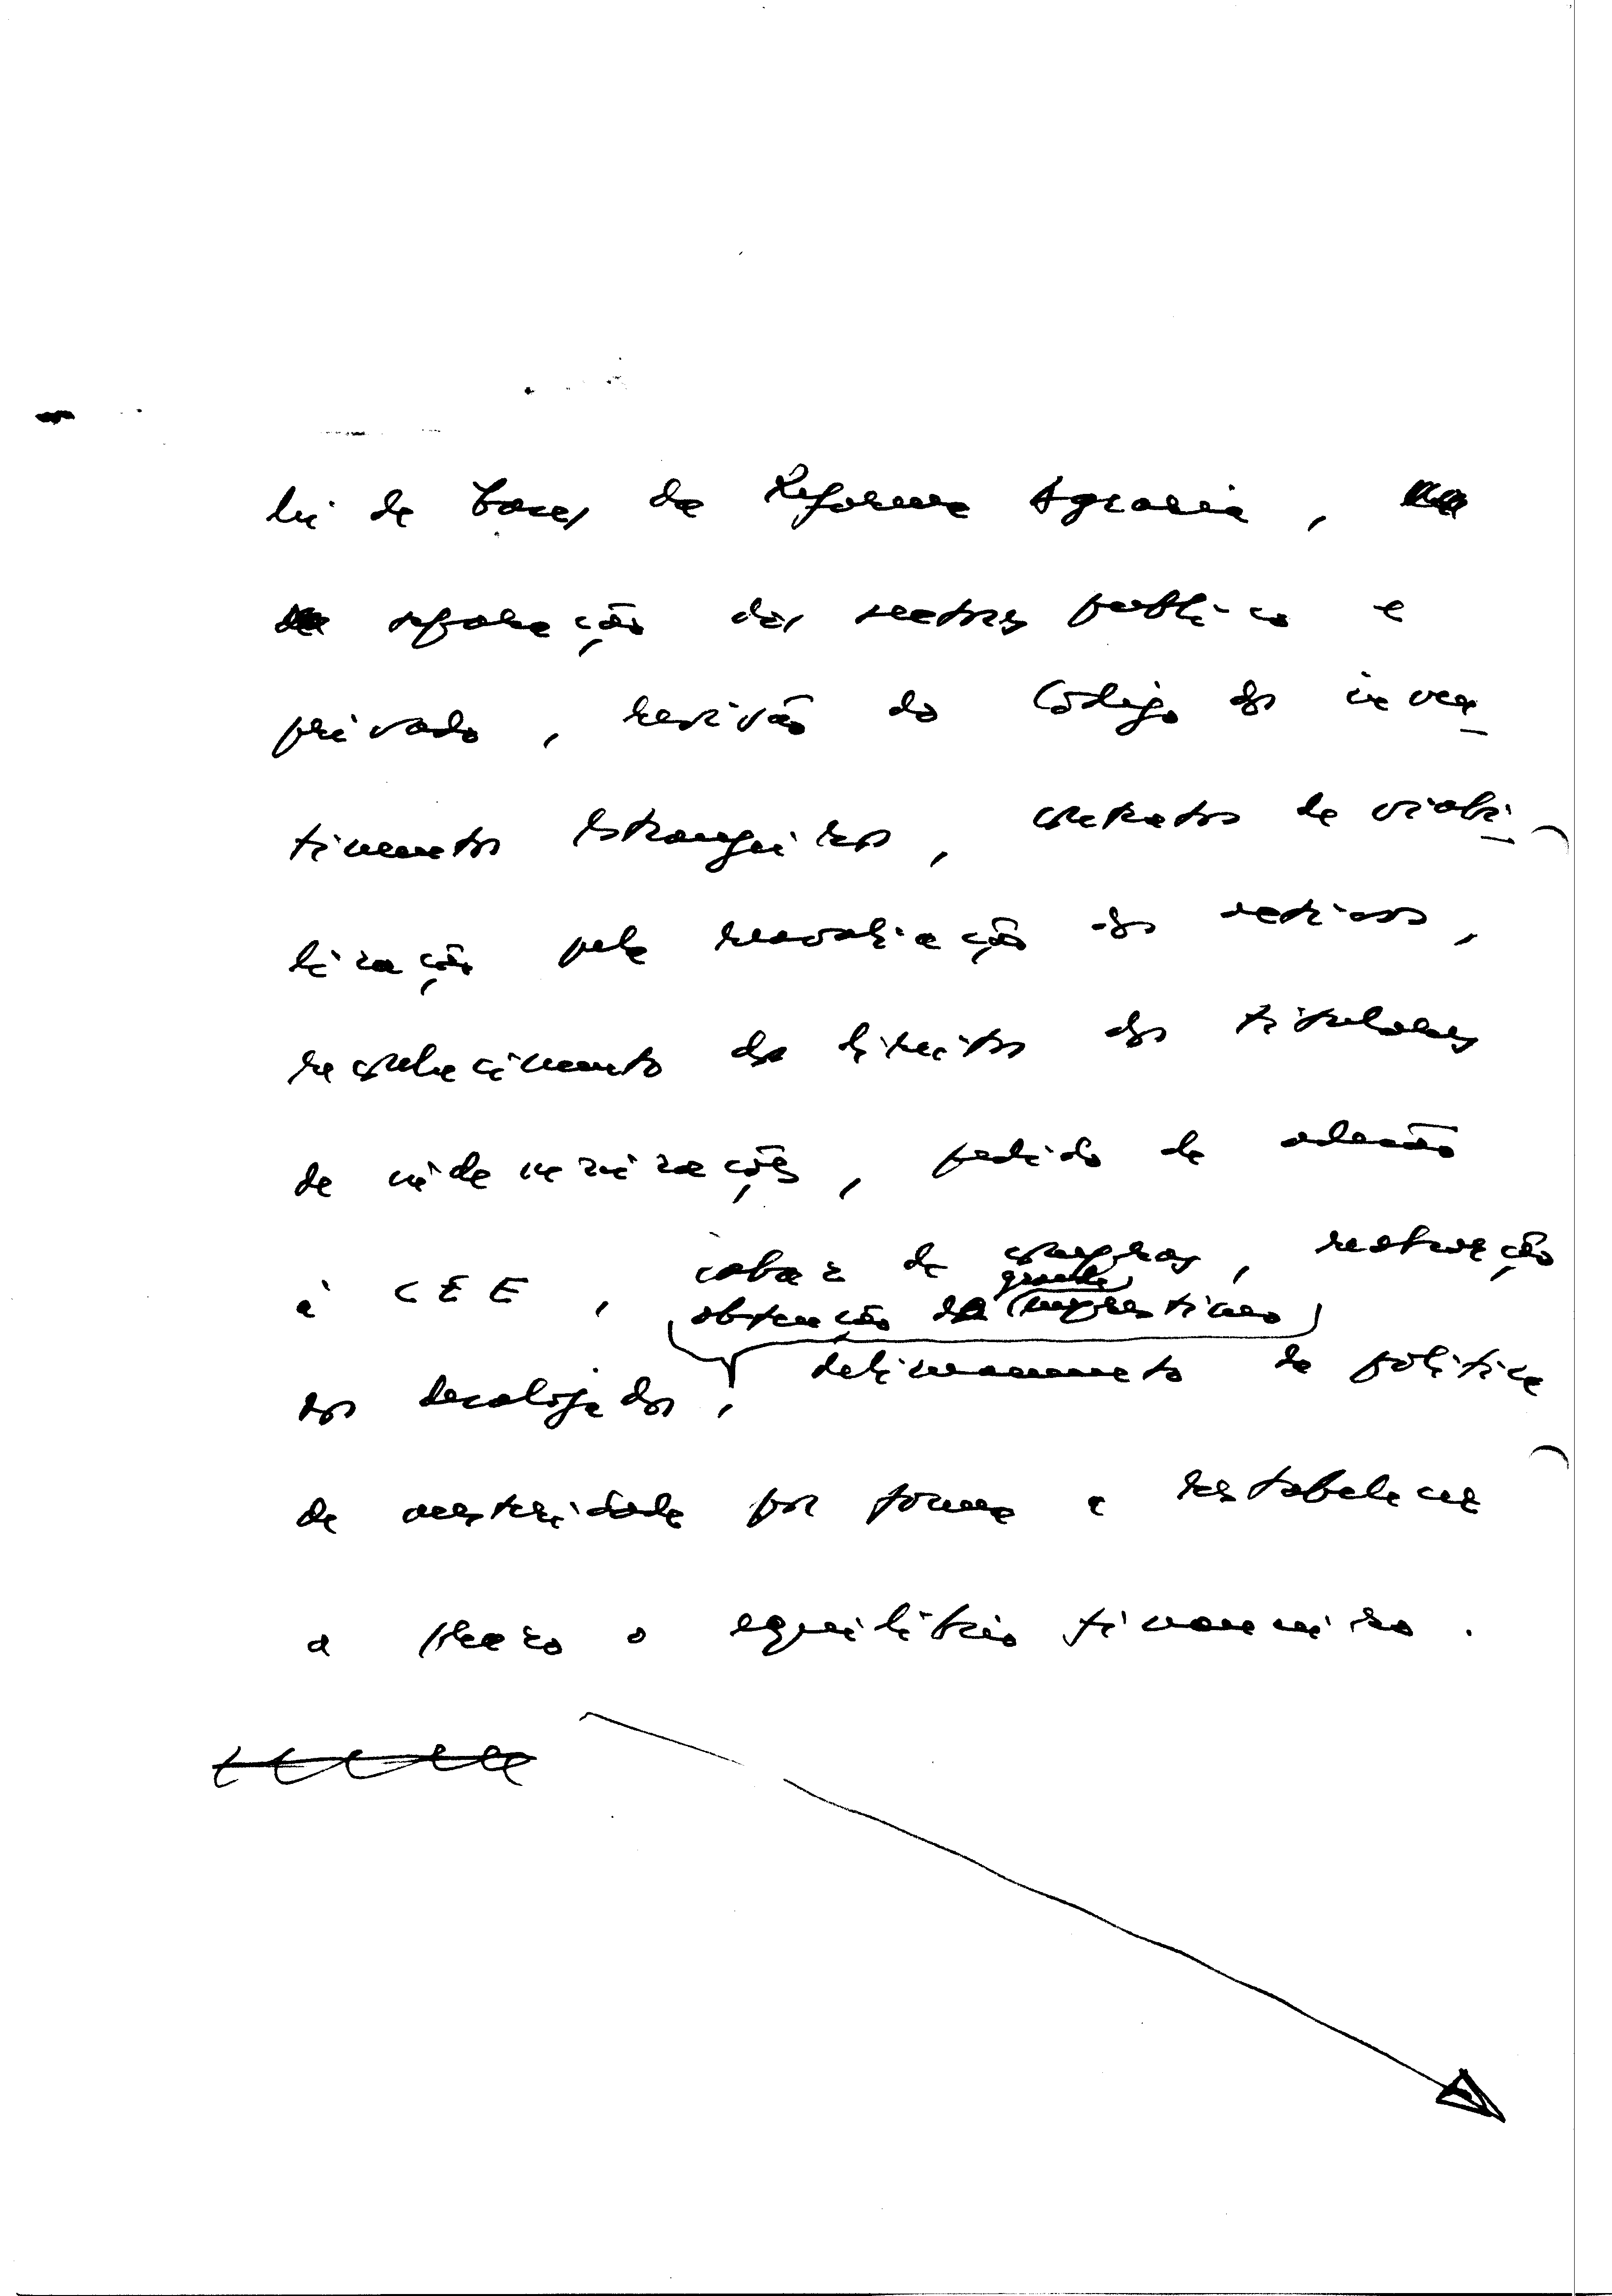 lei de bases da Reforma Agrária,
separação dos sectores público e
privado, revisão do Código dos inves
timentos Estrangeiros, contratos de viabi
lização pela reavaliação dos activos,
reconhecimento do direito dos titulares
de indemnizações, pedido de adesão
à CEE, cabaz de compras, realização
grande
obtenção do empréstimo
dos desalojados, delineamento da política
de austeridade por forma a restabelecer
a prazo o equilíbrio financeiro.